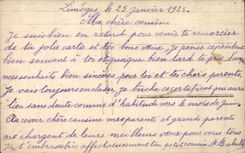 Limoges, le 25 janvier 1925.
Ma chère cousine
Je suis bien en retard pour venir te remercier
de ta jolie carte et tes bons vœux. Je pense cependant
bien souvent à toi et quoique bien tard je t'
mes souhaits bien sincères pour toi et tes chers parents.
Je vais toujours en classe, je bûche ce certificat qui aura
lieu sans doute comme d'habitude vers le mois de juin.
Au revoir chère cousine mes parents et grand parents
me chargent de leurs meilleurs vœux pour vous tous
Je t'embrasse affectueusement ton petit cousin